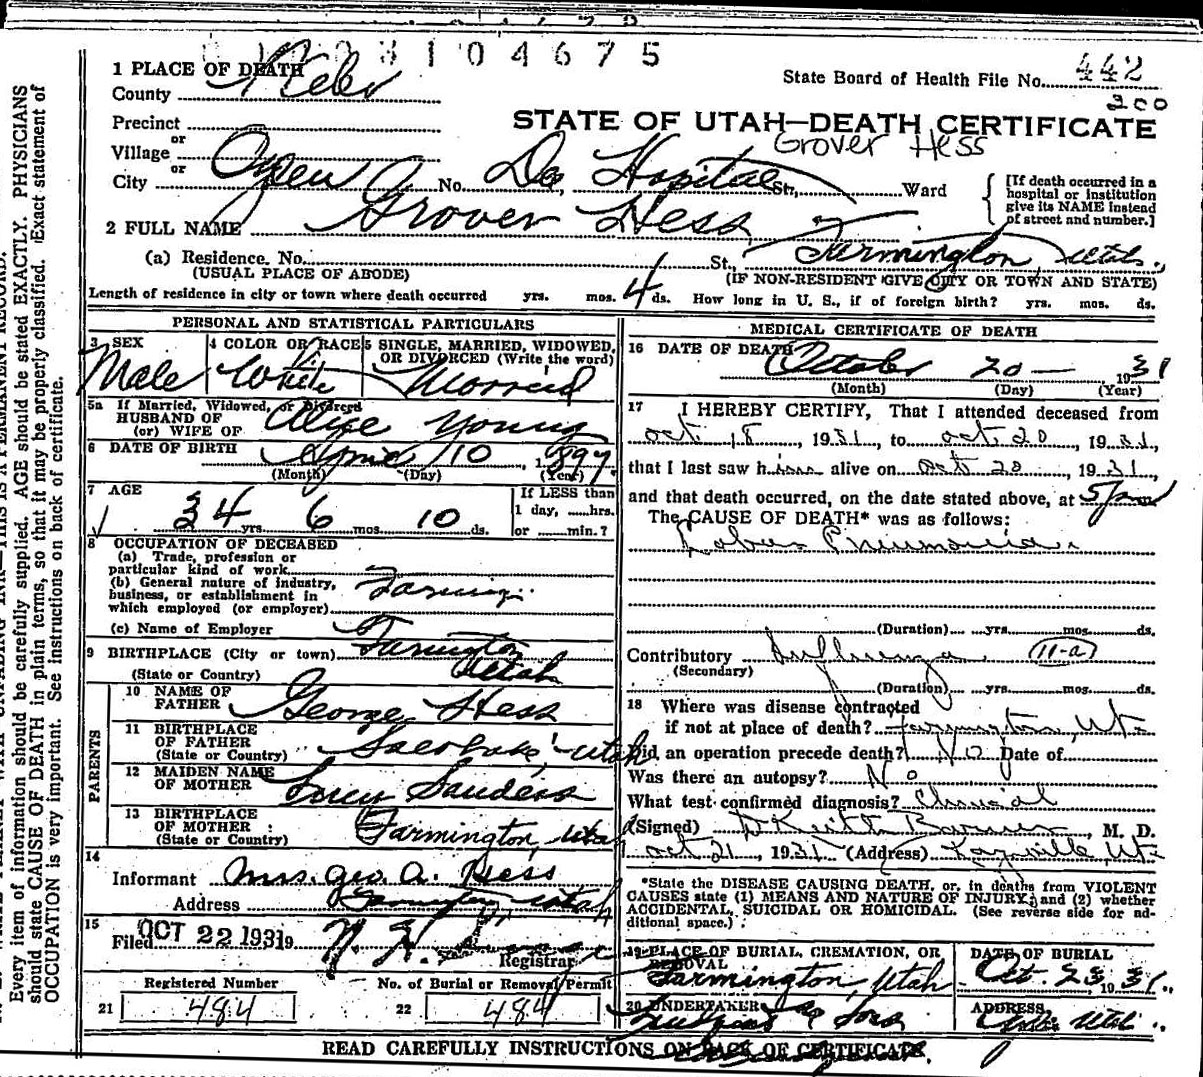 3104675
1 PLACE OF DEATH
County Weber
State Board of Health File No. 442
200
Precinct
or
STATE OF UTAH—DEATH CERTIFICATE
Grover Hess
Village
or
City Ogden No. Dee Hospital St., Ward
[If death occurred in a hospital or institution give its NAME instead of street and number.]
2 FULL NAME Grover Hess
(a) Residence. No. St., Farmington, Utah.,
(USUAL PLACE OF ABODE) (IF NON-RESIDENT GIVE CITY OR TOWN AND STATE)
Length of residence in city or town where death occurred yrs. mos. 4 ds. How long in U. S., if of foreign birth? yrs. mos. ds.
PERSONAL AND STATISTICAL PARTICULARS
3 SEX 4 COLOR OR RACE 5 SINGLE, MARRIED, WIDOWED, OR DIVORCED (Write the word)
Male White Married
5a If Married, Widowed, or Divorced
HUSBAND OF
(or) WIFE OF Alice Young
6 DATE OF BIRTH April 10, 1897
(Month) (Day) (Year)
7 AGE
34 yrs. 6 mos. 10 ds.
If LESS than
1 day, hrs.
or min.?
8 OCCUPATION OF DECEASED
(a) Trade, profession or
particular kind of work
(b) General nature of industry,
business, or establishment in
which employed (or employer) Farming
(c) Name of Employer
9 BIRTHPLACE (City or town) Farmington
(State or Country) Utah
PARENTS
10 NAME OF
FATHER George Hess
11 BIRTHPLACE
OF FATHER
(State or Country) Utah
12 MAIDEN NAME
OF MOTHER Sanders
13 BIRTHPLACE
OF MOTHER
(State or Country) Farmington, Utah
14
Informant Mrs. Geo. A. Hess
Address Farmington Utah
15
Filed OCT 22 1931 19
Registrar
Registered Number No. of Burial or Removal Permit
21 484 22 484
MEDICAL CERTIFICATE OF DEATH
16 DATE OF DEATH October 20 — 1931
(Month) (Day) (Year)
17 I HEREBY CERTIFY, That I attended deceased from
Oct 18, 1931, to Oct 20, 1931,
that I last saw him alive on Oct 20, 1931,
and that death occurred, on the date stated above, at 5 pm
The CAUSE OF DEATH* was as follows:
Lobar Pneumonia
(Duration) yrs. mos. ds.
Contributory Influenza (11-a)
(Secondary)
(Duration) yrs. mos. ds.
18 Where was disease contracted
if not at place of death? Farmington, Ut.
Did an operation precede death? No Date of
Was there an autopsy? No
What test confirmed diagnosis? Clinical
(Signed) D Keith Barnes, M. D.
Oct 21, 1931 (Address) Kaysville, Ut.
*State the DISEASE CAUSING DEATH, or, in deaths from VIOLENT
CAUSES state (1) MEANS AND NATURE OF INJURY; and (2) whether
ACCIDENTAL, SUICIDAL OR HOMICIDAL. (See reverse side for ad-
ditional space.)
19 PLACE OF BURIAL, CREMATION, OR
REMOVAL DATE OF BURIAL
Farmington, Utah Oct. 23, 1931.
20 UNDERTAKER ADDRESS
& Sons Utah
READ CAREFULLY INSTRUCTIONS ON BACK OF CERTIFICATE.
Every item of information should be carefully supplied. AGE should be stated EXACTLY. PHYSICIANS
should state CAUSE OF DEATH in plain terms, so that it may be properly classified. Exact statement of
OCCUPATION is very important. See instructions on back of certificate.